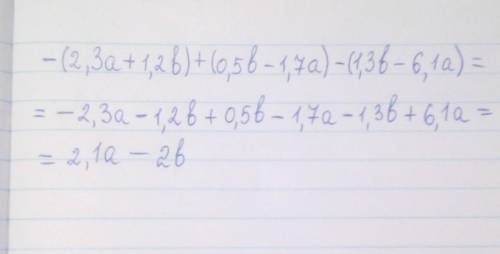 -(2,3a+1,2b)+(0,5b-1,7a)-(1,3b-6,1a)=
=-2,3a-1,2b+0,5b-1,7a-1,3b+6,1a=
=2,1a-2b